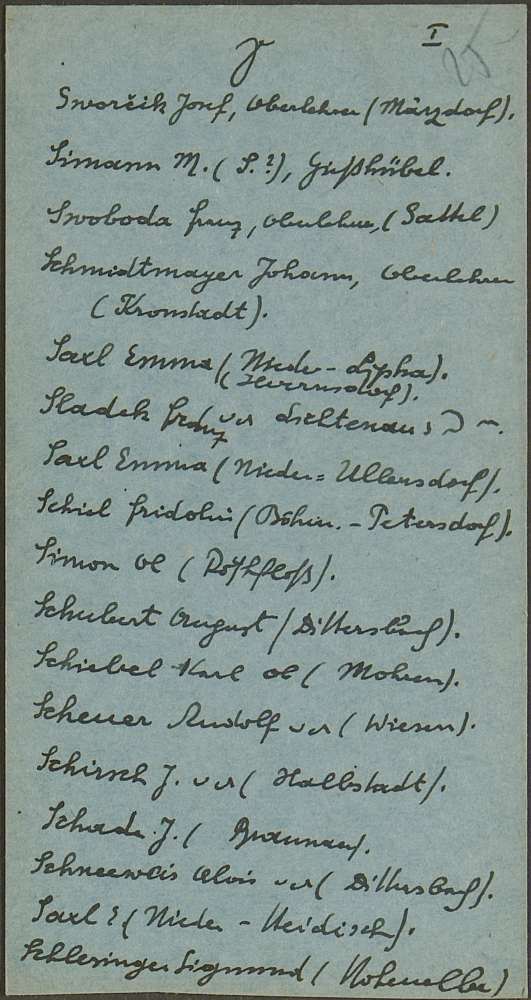 I
25
S
Sworčik Josef, Oberlehrer (Märzdorf).
Simann M. (S.?), Gießhübel.
Swoboda Franz, Oberlehrer, (Sattel)
Schmidtmayer Johann, Oberlehrer
(Kronstadt).
Saxl Emma (Nieder-Lipka).
Sladek Franz Lichtenau
Saxl Emma (Nieder=Ullersdorf).
Schiel Fridolin (Böhm.-Petersdorf).
Simon Ol (Rothfloß).
Schubert August (Dittersbach).
Schiebel Karl Ol (Mohren).
Scheuer Rudolf (Wiesen).
Schirsch J. (Halbstadt).
Schade J. (Braunau).
Schneeweis Alois (Dittersbach).
Saxl E (Nieder-Heidisch).
Schlesinger Sigmund (Hohenelbe)